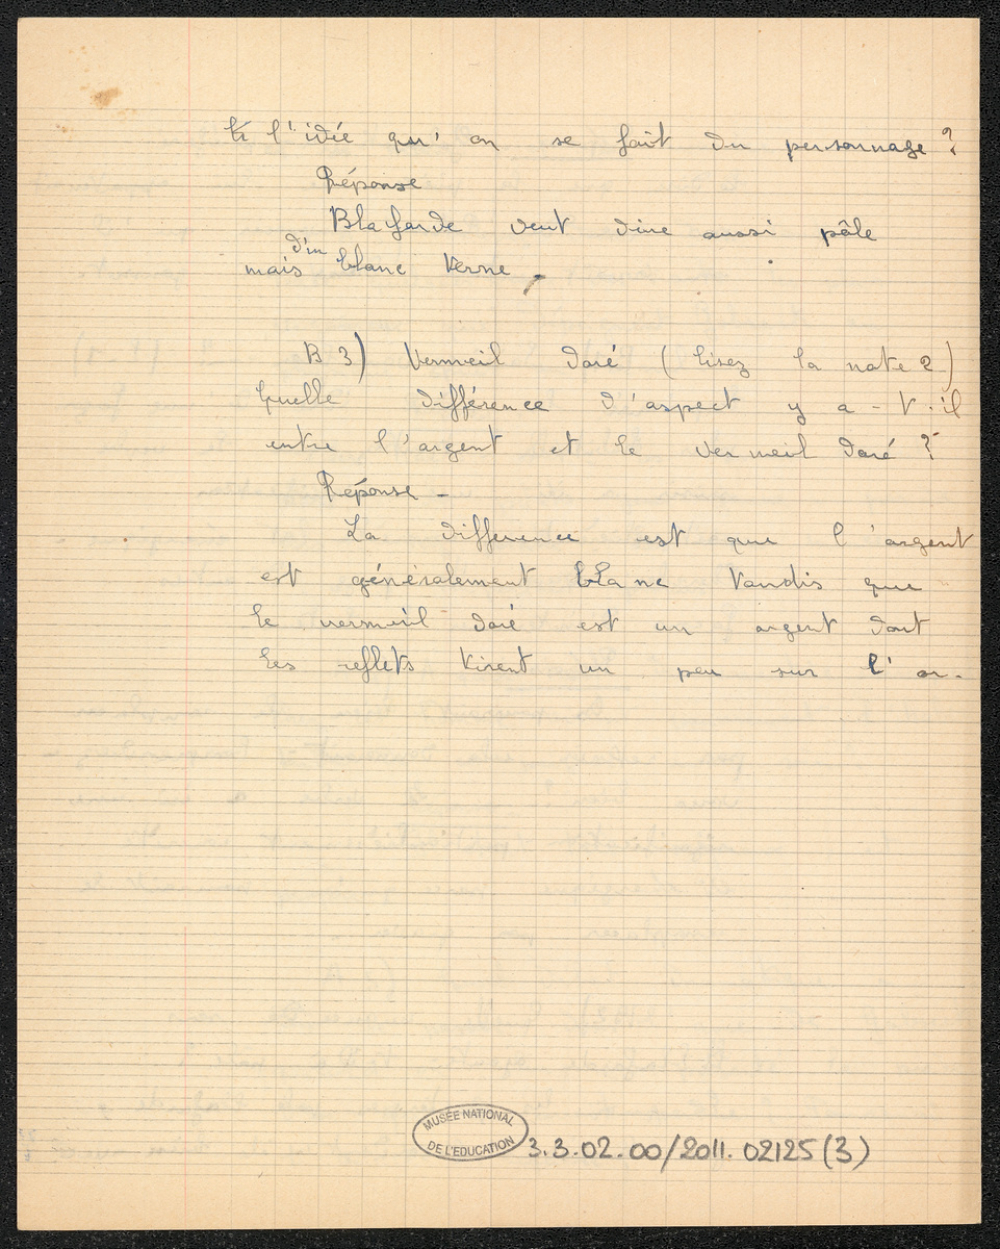 té l'idée qu' on se fait du personnage ?
Réponse
Blafarde veut dire aussi pâle
d'un
mais blanc terne,
B 3) Vermeil doré ( lisez la note 2 )
Quelle différence d'aspect y a-t-il
entre l'argent et le vermeil doré ?
Réponse -
La difference est que l'argent
est généralement blanc tandis que
le vermeil doré est un argent dont
les reflets tirent un peu sur l'or.
MUSÉE NATIONAL
DE L'EDUCATION
3.3.02.00/2011.02125(3)